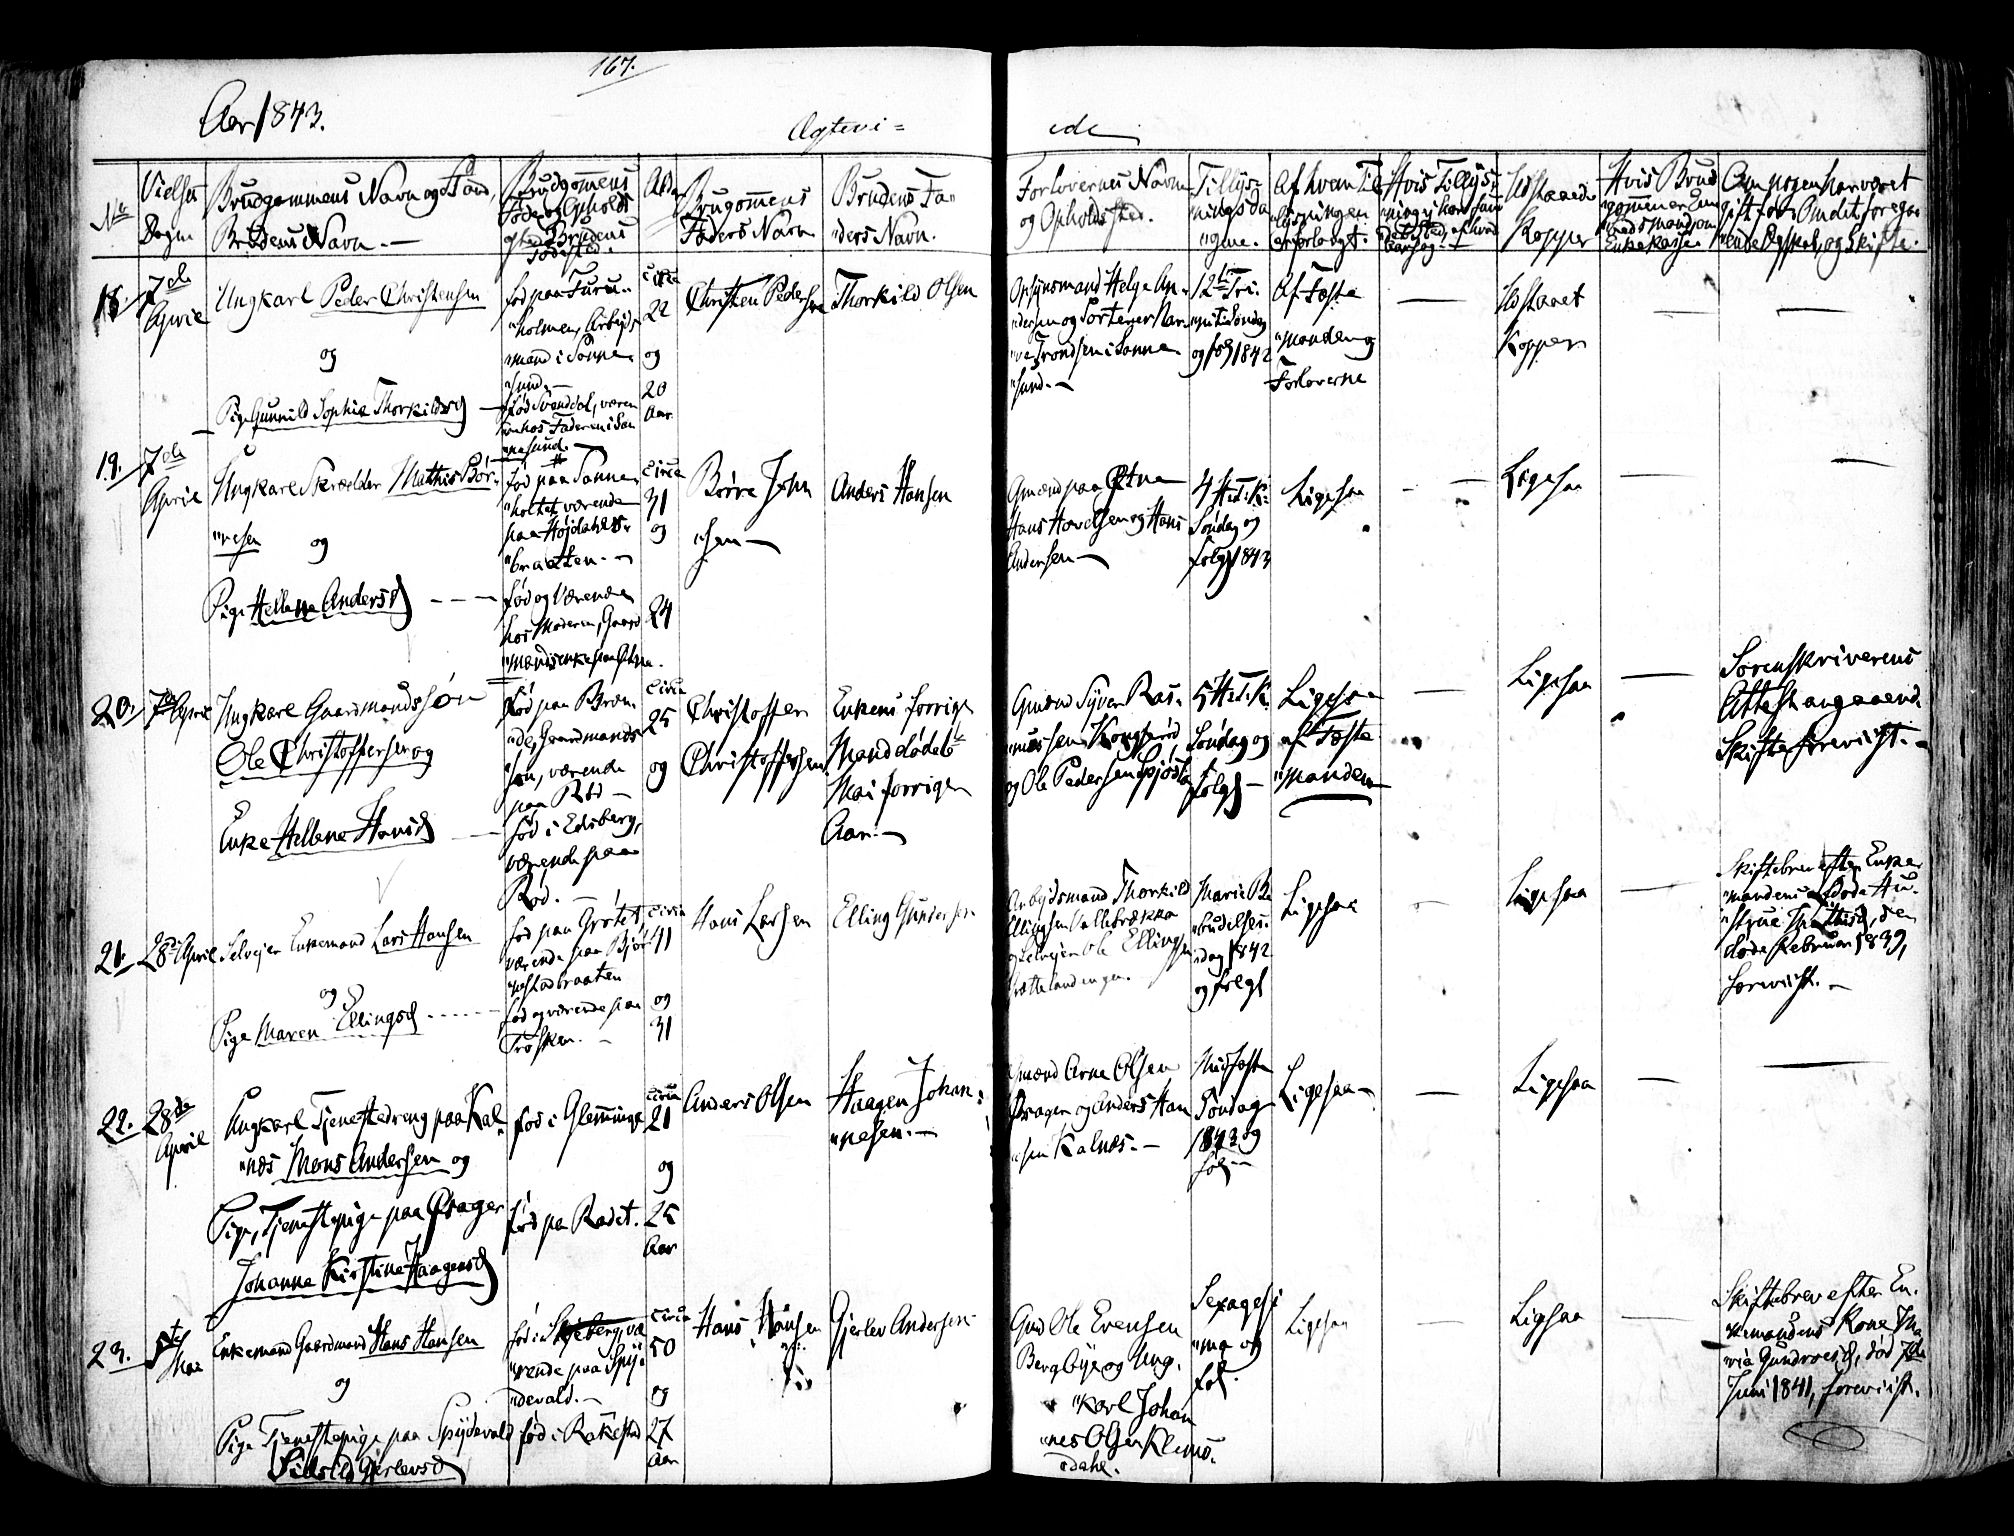 167.
Aar 1843.
Ægtevi=
ede
No
Vielses
Dagen
Brudgommens Navn og Stand,
Brudens Navn.
Brudgommens
Føde og Opholds
sted Brudens
Fødested.
Alder
Brugommens
Faders Navn
Brudens Fa-
"ders Navn.
Forlovernes Navn
og Opholdssted.
Tillys-
"ningsda
"gene.
Af hvem Til
lysningen
er forlangt.
Hvis Tillys-
Udstaaede
Kopper
Hvis Brud
gommen er Enke
Enkekasse
Om nogen har været
gift før, Om det foregaa
"ende Ægtesk. og Skifte.
18.
7de
April
Ungkarl Peder Christensen
og
Pige Gunnild Sophie Thorkildsd
fød paa Furu-
"holmen, Arbejds
"mand i Sanne
"sund.
fød Svenddal, væren
hos Faderen i San
nesund.
circa
22
og
20
Aar
Christen Pedersen
Thorkild Olsen
Opsynsmand Helge An-
dersen og Sortener Nar-
"ve Trondsen i Sanne
"sund.
12te Tri-
niti Søndag
og følg 1842
Af Fæste
"manden og
Forloverne
Udstaaet
Kopper
19.
7de
April
Ungkarl Skrædder Mathis Bør-
"resen og
Pige Hellene Andersd
fød paa Sanne-
"holtet, værende
paa Højdahls-
"braatten.
fød og værende
hos Moderen, Gaard
"mandsenke paa Ætne.
circa
31
og
24
Børre John
"sen
Anders Hansen
Gmænd paa Ætne
Hans Hovelsen og Hans
Andersen
4 H.3.K.
Søndag og
følg 1843
Ligesaa
Ligesaa
20.
7de April
Ungkarl Gaardmandssøn
Ole Christoffersen og
Enke Hellene Hansd
fød paa Bron-
"de, Gaardmands
"søn, værende
paa Rød
fød i Edsberg,
værende paa
Rød.
circa
25
og
Christoffer
Christoffersen
Enkens forrige
Mand døde
Mai forrige
Aar.
Gmænd Syver Ras-
"mussen Kongsrød
og Ole Pedersen
5 H.3.K.
Søndag og
følg
Ligesaa
af Fæste
"manden
Ligesaa
Sorenskriverens
Attest angaaend
Skifte foreviist.
21.
28de April
Selvejer Enkemand Lars Hansen
og
Pige Maren Ellingsd
fød paa Grøtet,
værende paa Bjør-
"nstadbraaten
fød og værende paa
Trosken.
circa
41
og
31
Hans Larsen
Elling Gundersen
Arbejdsmand Thorkild
Ellingsen Vallebrække
og Selvejer Ole Ellingsen
Marie Be
"budelses-
"dag 1842
og følg
Ligesaa
Ligesaa
Skiftebrev efter Enke-
"mandens døde Hu-
"strue den
døde Februar 1839,
foreviist.
22.
28de
April
Ungkarl Tjenestedreng paa Kal-
"næs Mons Andersen og
Pige, Tjenestepige paa Prager
Johanne Kirstine Haagensd
fød i Glemminge
fød paa Radet.
circa
21
og
25
Aar
Anders Olsen
Haagen Johan-
"nesen.
Gmænd Arne Olsen
Prager og Anders Han
"sen Kalnæs.
Midfaste
Søndag
1843 og
føl
Ligesaa
Ligesaa
23.
5te
Mai
Enkemand Gaardmand Hans Hansen
og
Pige Tjenestepige paa Spydevold
Siksild Gjerlevsd
fød i Skjeberg, væ
"rende paa Spy
"devold.
fød i Rakkestad
circa
50
og
27
Aar
Hans Hansen
Gjerlev Andersen
Gmd Ole Evensen
Bergbye og Ung-
"karl Johan
"nes Olsen Klevns-
"dahl.
Sexagesi
"ma og
føl.
Ligesaa
Ligesaa
Skiftebrev efter En-
"kemandens Kone Ma
"rie Gundersd, død 7de
Juni 1841, foreviist.